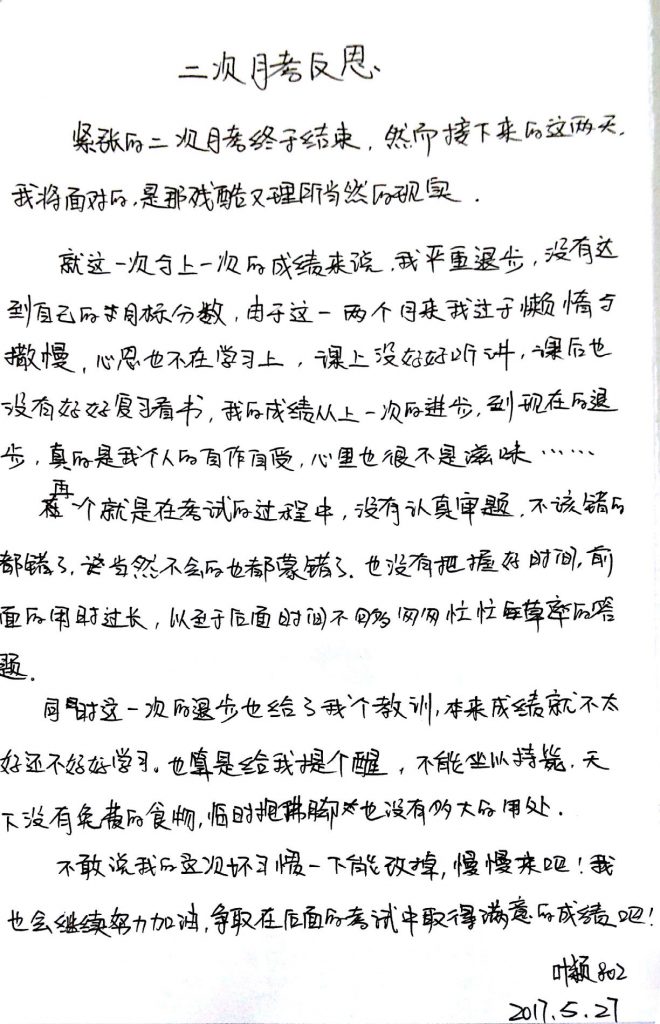 二次月考反思
紧张的二次月考终于结束，然而接下来的这两天，
我将面对的，是那残酷又理所当然的现实．
就这一次与上一次的成绩来说，我严重退步，没有达
到自己的目标分数，由于这一两个月来我过于懒惰与
散慢，心思也不在学习上，课上没好好听讲，课后也
没有好好复习看书，我的成绩从上一次的进步，到现在的退
步，真的是我个人的自作自受，心里也很不是滋味……
再一个就是在考试的过程中，没有认真审题，不该错的
都错了，当然不会的也都蒙错了．也没有把握好时间，前
面的用时过长，以至于后面时间不够匆匆忙忙草率的答
题．
同时这一次的退步也给了我个教训，本来成绩就不太
好还不好好学习。也算是给我提个醒，不能坐以待毙．天
下没有免费的食物，临时抱佛脚也没有多大的用处．
不敢说我的这次坏习惯一下能改掉，慢慢来吧！我
也会继续努力加油，争取在后面的考试中取得满意的成绩吧！
叶颖 802
2017.5.27